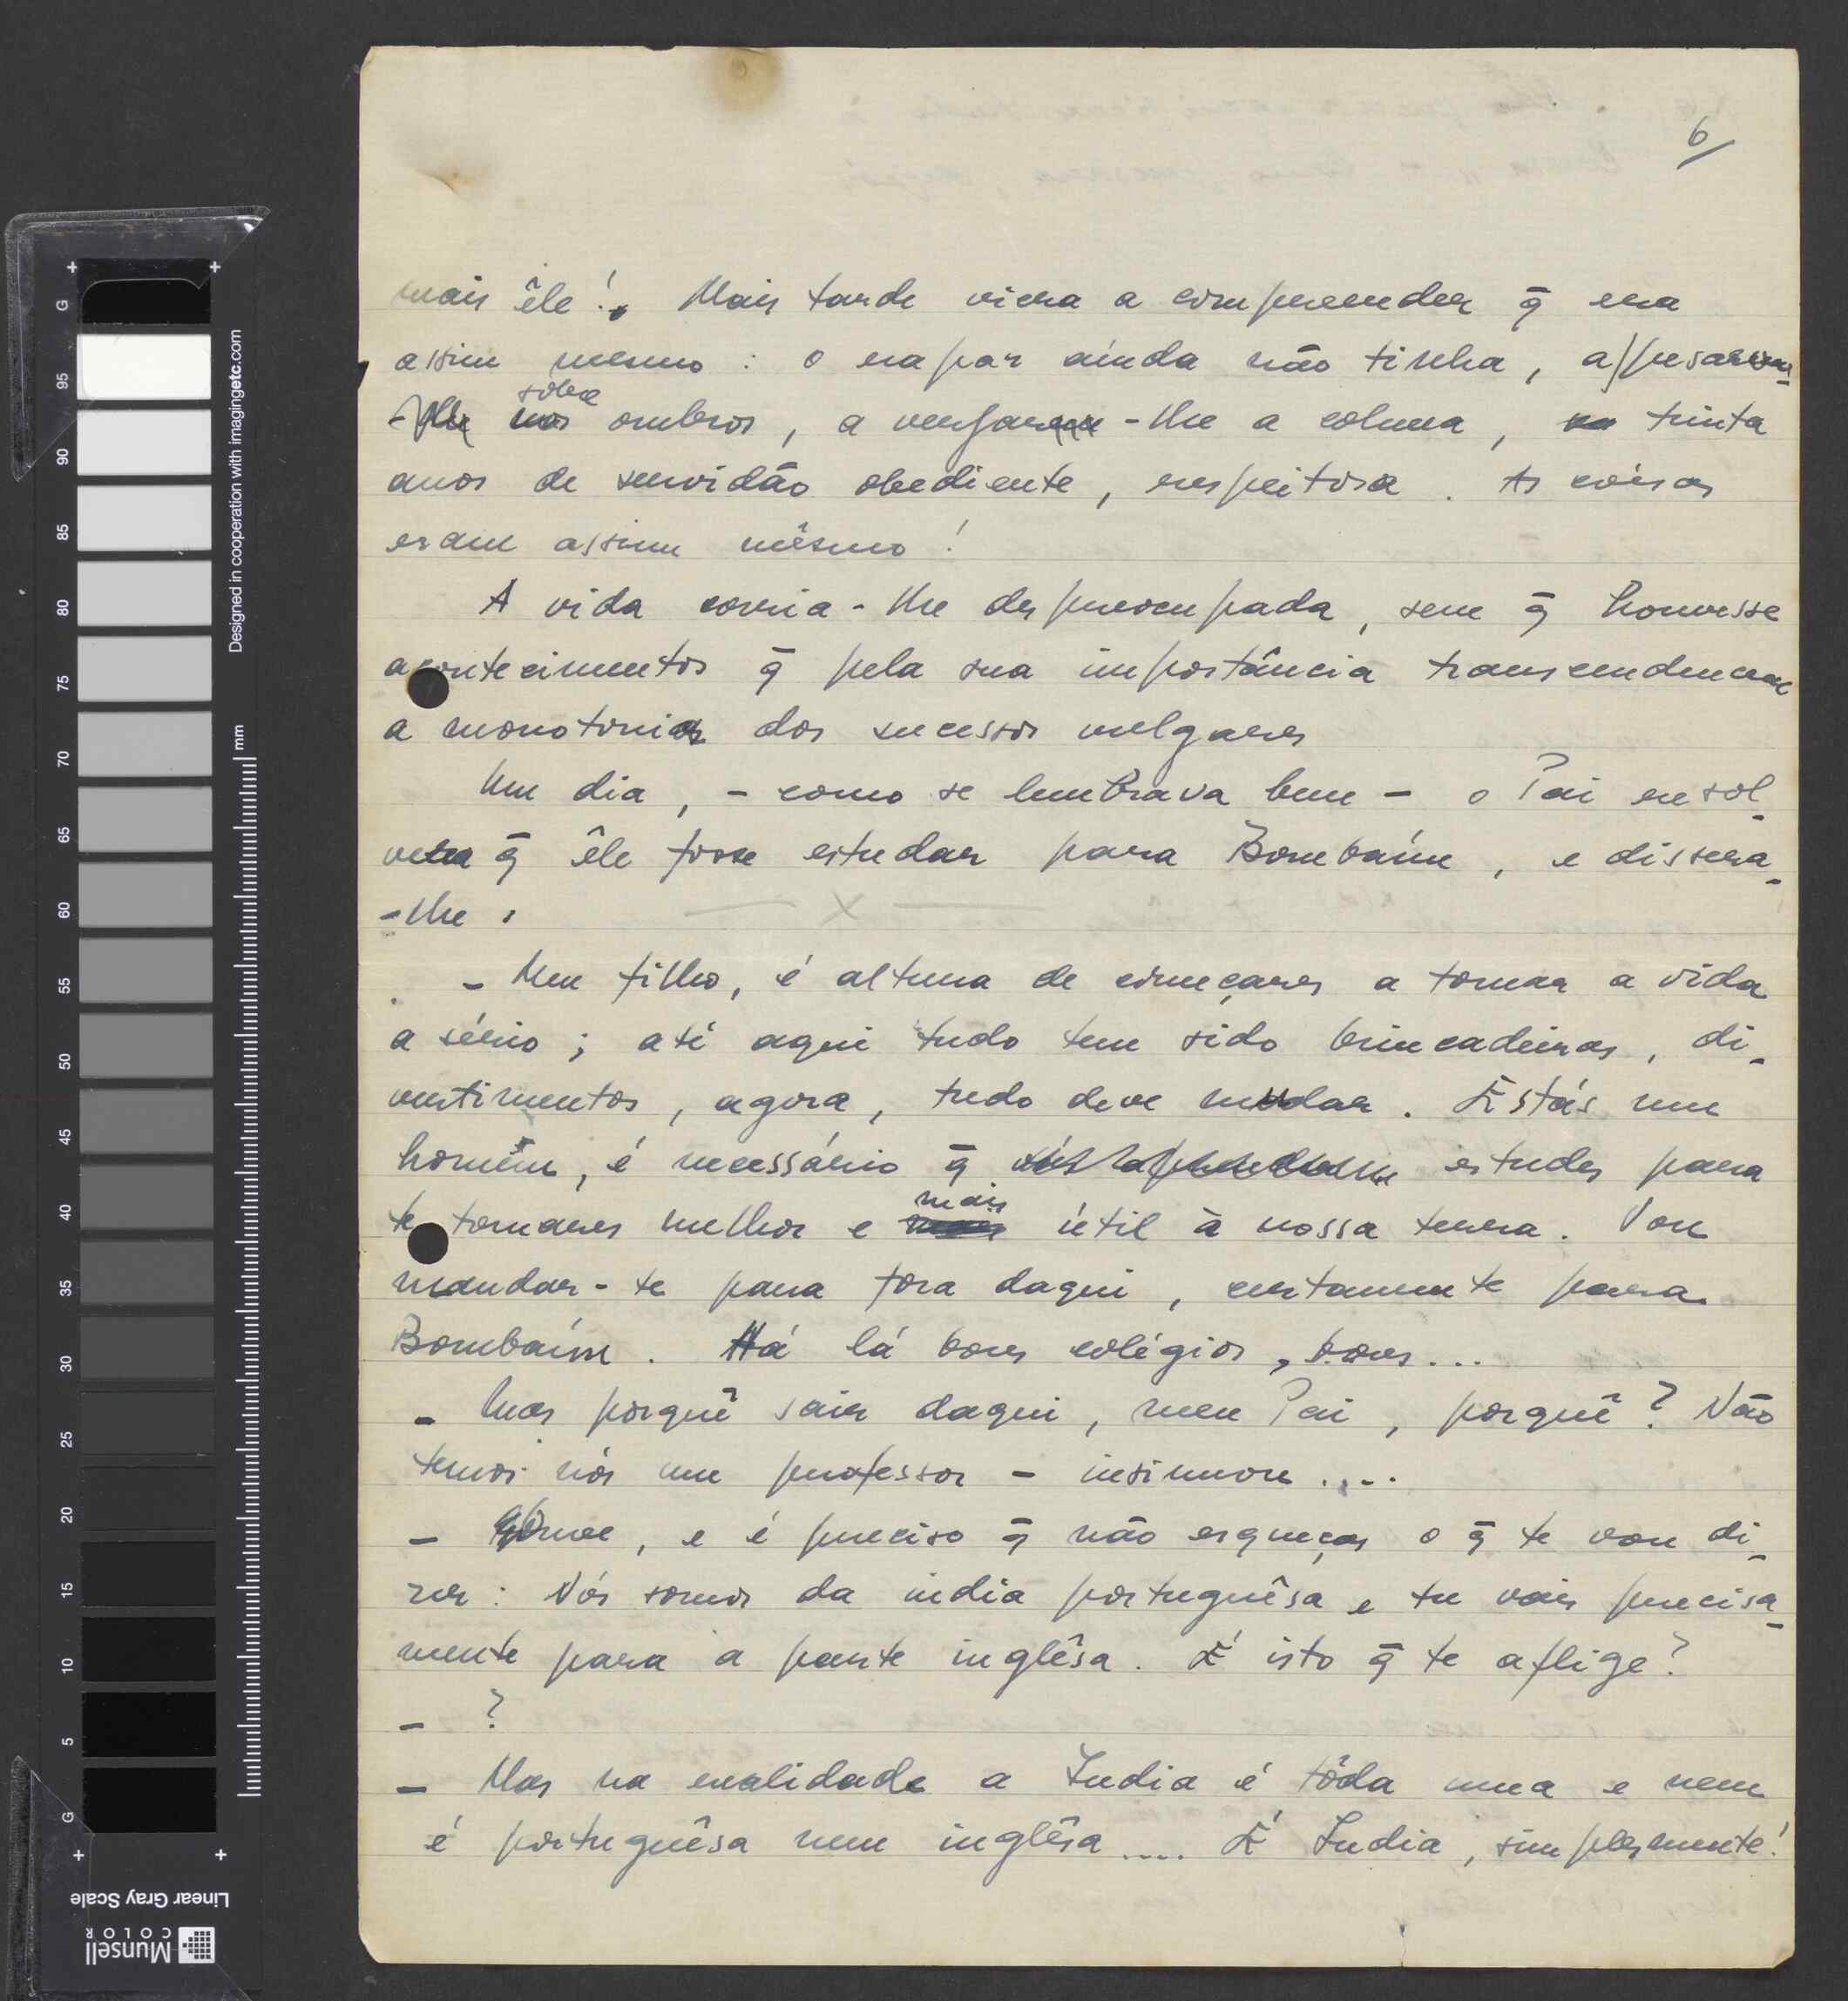 6/
mais êle!. Mais tarde viera a compreender q̃ era
assim mesmo: o rapaz ainda não tinha, a pesarem-
-lhe sôbre nos ombros, a vergarem-lhe a coluna, trinta
anos de servidão obediente, respeitosa. As coisas
eram assim mêsmo!
A vida corria-lhe despreocupada, sem q̃ houvesse
acontecimentos q̃ pela sua importância transcendencem
a monotonia dos sucessos vulgares
Um dia, - como se lembrava bem - o Pai resol-
vera q̃ êle fosse estudar para Bombaím, e dissera-
-lhe:
X
- Meu filho, é altura de começares a tomar a vida
a sério; até aqui tudo tem sido brincadeiras, di-
vertimentos, agora, tudo deve mudar. Estás um
homem, é necessário q̃ estudes para
te tornares melhor e mais útil à nossa terra. Vou
mandar-te para fora daqui, certamente para
Bombaím. Há lá bons colégios, bons...
- Mas porquê sair daqui, meu Pai, porquê? Não
temos nós um professor - insinuou....
- , e é preciso q̃ não esqueças o q̃ te vou di-
zer: Nós somos da india portuguêsa e tu vais precisa-
mente para a parte inglêsa. É isto q̃ te aflige?
- ?
- Mas na realidade a India é tôda uma e nem
é portuguêsa nem inglêsa.... É India, simplesmente!
G 95 90 85 80 75 70 65 60 55 50 45 40 35 30 25 20 15 10 5 G
mm
Designed in cooperation with imagingetc.com
Linear Gray Scale
Munsell
COLOR